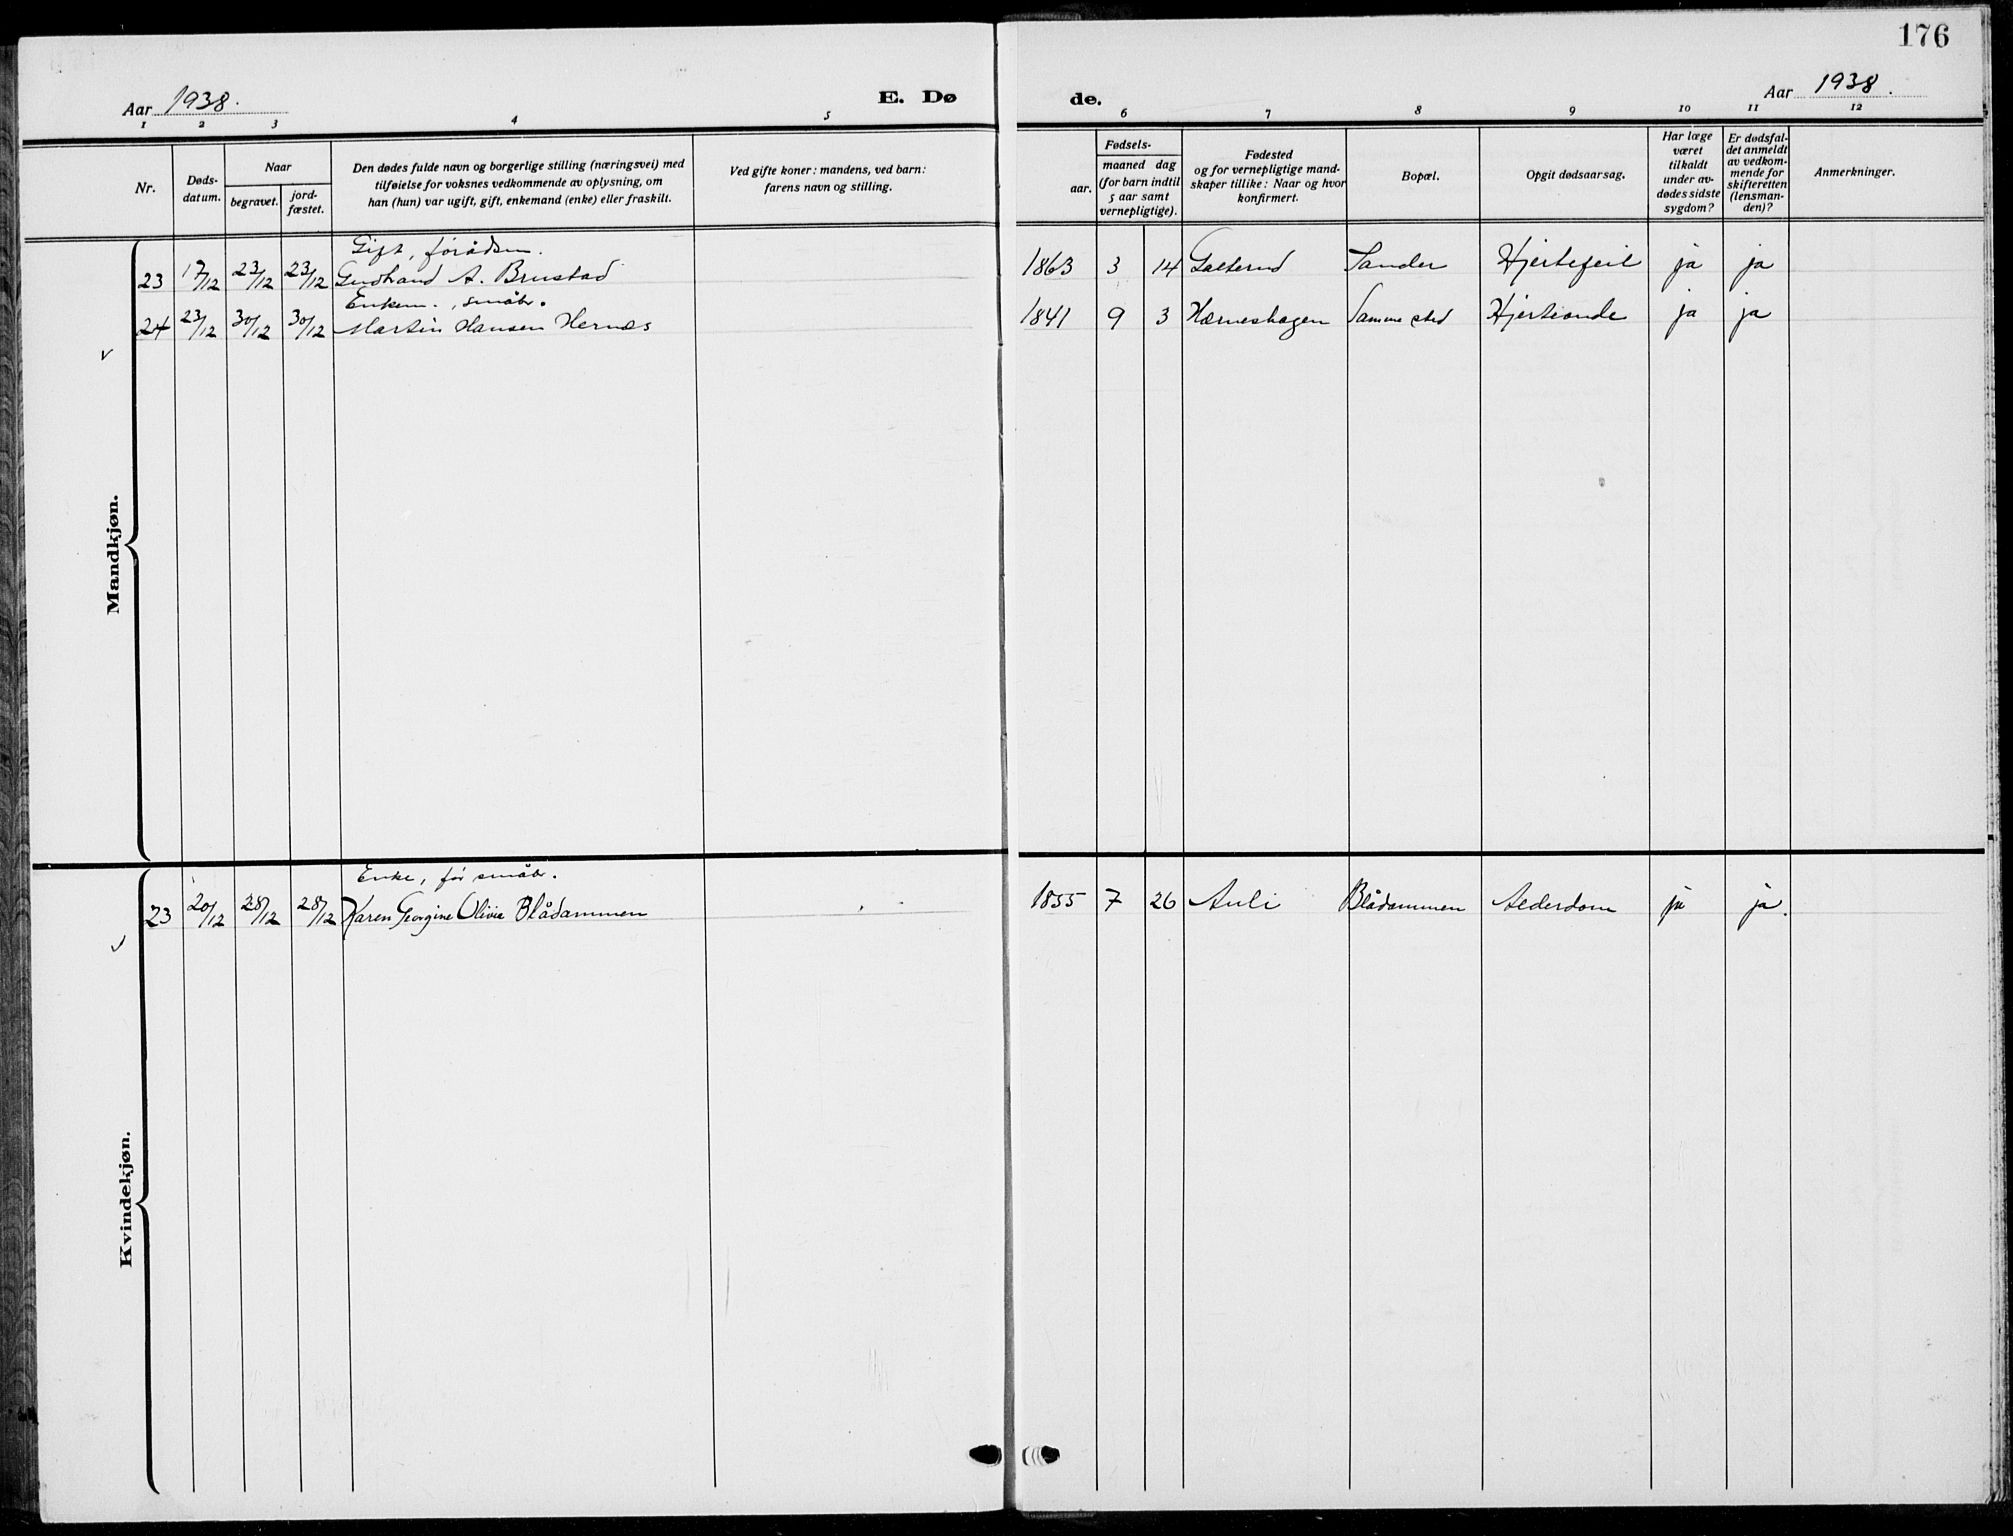 176
Aar 1938.
E. Dø
de.
Aar 1938.
1 2 3 4 5 6 7 8 9 10 11 12
Nr.
Døds-
datum.
Naar
begravet.
jord-
fæstet.
Den dødes fulde navn og borgerlige stilling (næringsvei) med
tilføielse for voksnes vedkommende av oplysning, om
han (hun) var ugift, gift, enkemand (enke) eller fraskilt.
Ved gifte koner: mandens, ved barn:
farens navn og stilling.
aar.
Fødsels-
maaned dag
(for barn indtil
5 aar samt
vernepligtige).
Fødested
og for vernepligtige mand-
skaper tillike: Naar og hvor
konfirmert.
Bopæl.
Opgit dødsaarsag.
Har læge
været
tilkaldt
under av-
dødes sidste
sygdom?
Er dødsfal-
det anmeldt
av vedkom-
mende for
skifteretten
(lensman-
den)?
Anmerkninger.
Mandkjøn.
Gift, förådsm.
23 17/12 23/12 23/12 Gudbrand A. Brustad 1863 3 14 Galterud Sander Hjertefeil ja ja
Enkem., småbr.
24 23/12 30/12 30/12 Martin Hansen Hernæs 1841 9 3 Hærneshagen Samme sted Hjerteonde ja ja
Kvindekjøn.
Enke, for småbr.
23 20/12 28/12 28/12 Karen Georgine Olivia Blådammen 1855 7 26 Auli Blådammen Alderdom ja ja.